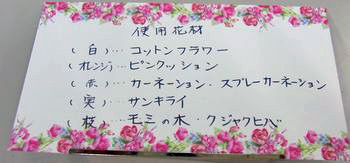 使用花材
(白)…コットンフラワー
(オレンジ)…ピンクッション
(赤)…カーネーション．スプレーカーネーション
(実)…サンキライ
(枝)…モミの木・クジャクヒバ